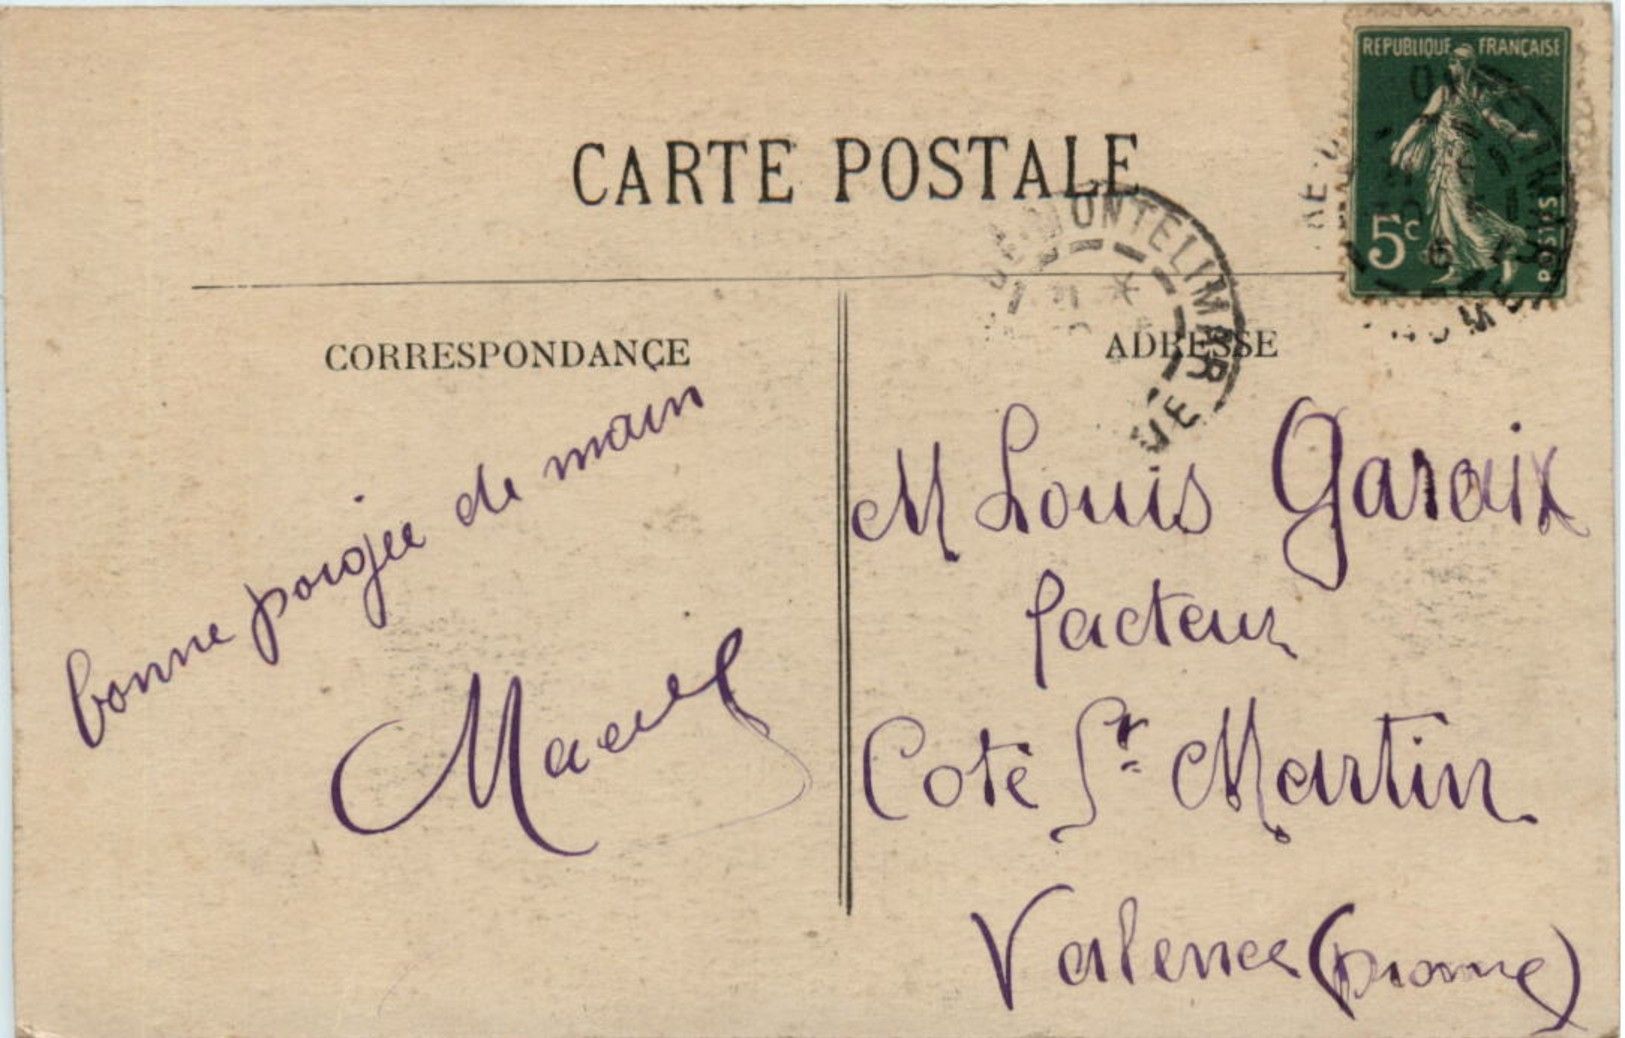 REPUBLIQUE FRANÇAISE
5c
POSTES
CARTE POSTALE
MONTELIMAR
CORRESPONDANCE
ADRESSE
bonne poigee de main
M Louis Garaix
facteur
Coté St Martin
Valence (Drome)